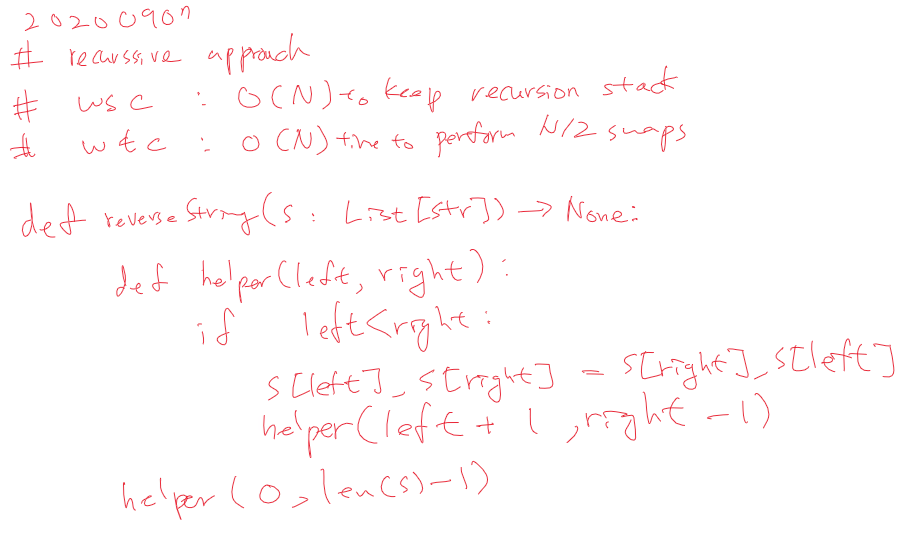 20200907
# recurssive approach
# wsc : O(N) to keep recursion stack
# wtc : O(N) time to perform N/2 swaps
def reverseString(s : List[str]) → None:
def helper(left, right) :
if left<right :
s[left], s[right] = s[right], s[left]
helper(left + 1 , right - 1)
helper(0, len(s)-1)